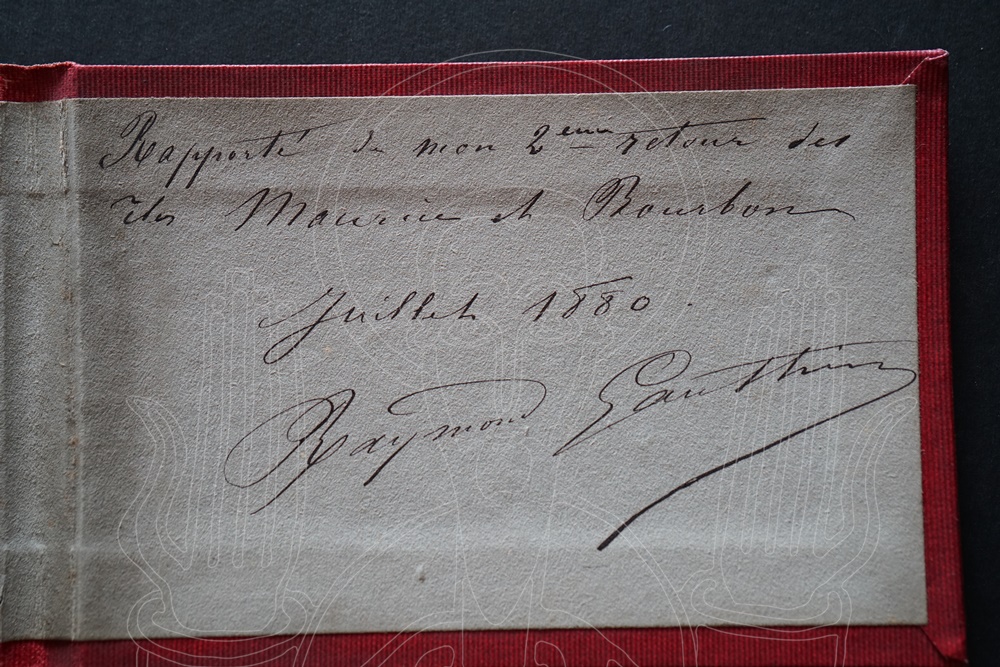 Rapporté de mon 2eme retour des
îles Maurice et Bourbon
Juillet 1880.
Raymond Gauthier